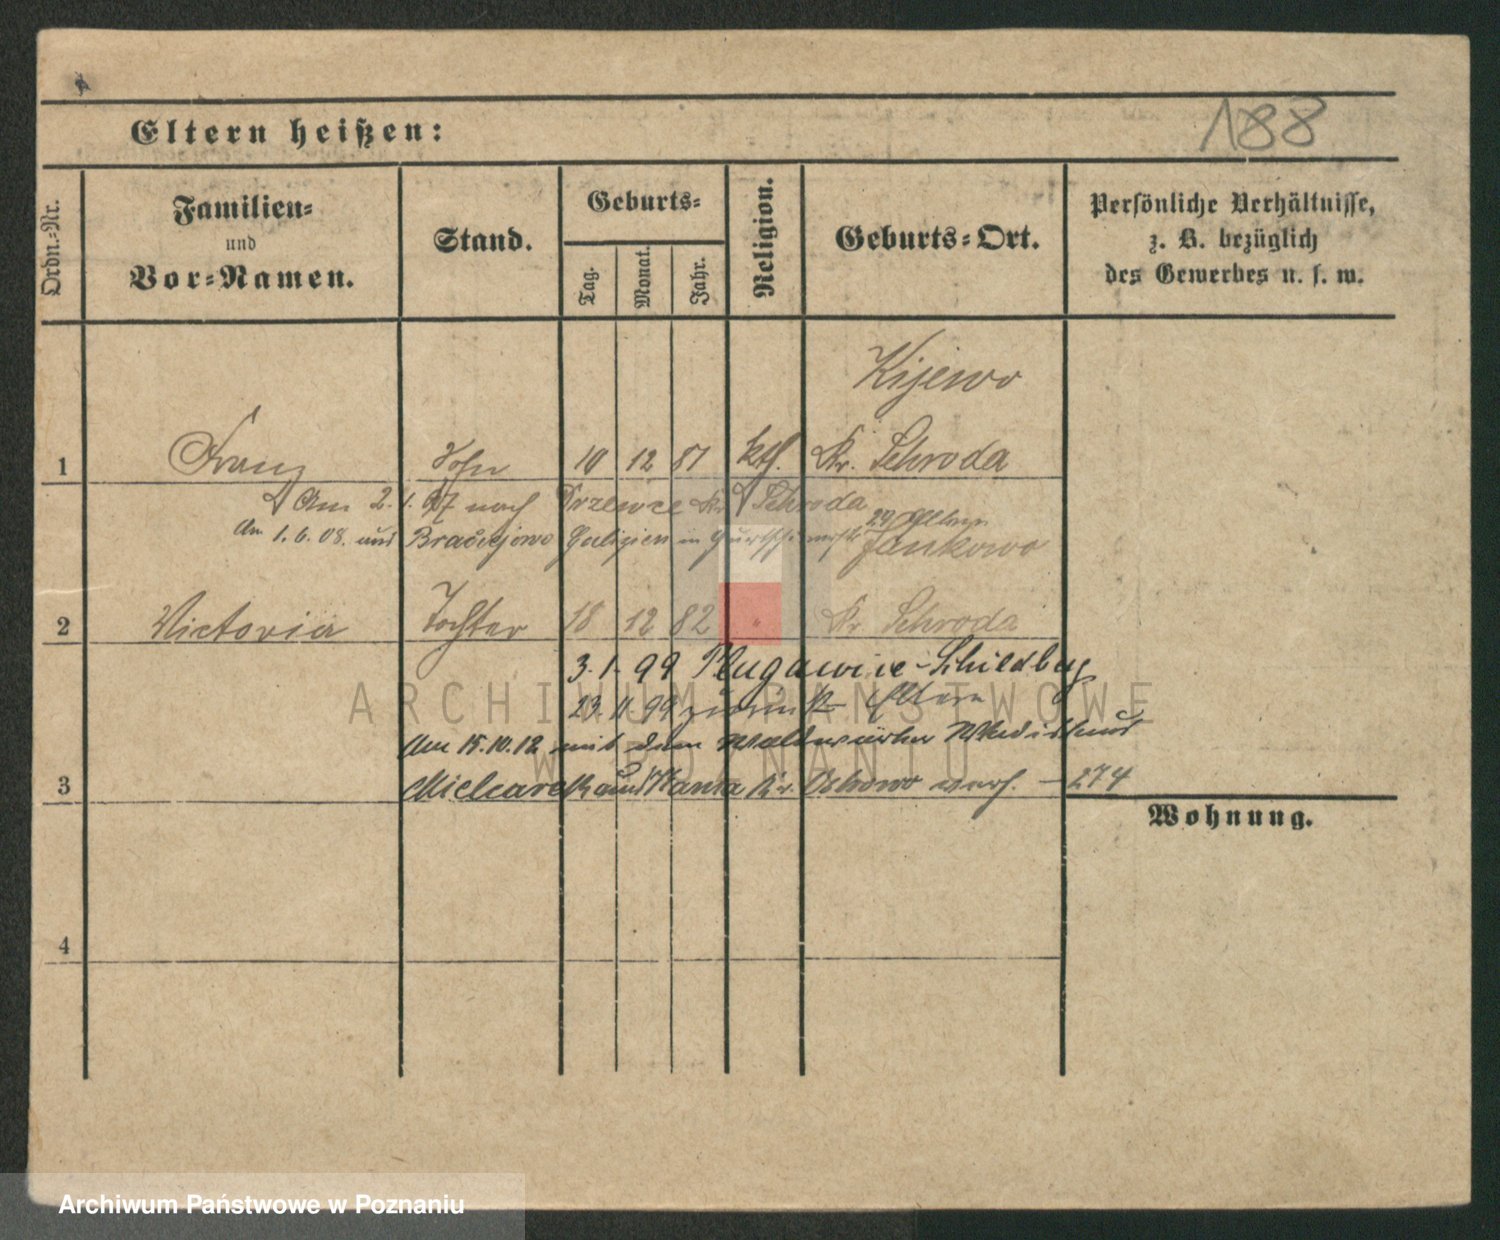 188
Eltern heißen:
Ordn.-Nr.
Familien-
und
Vor-Namen.
Stand.
Geburts-
Tag.
Monat.
Jahr.
Religion.
Geburts-Ort.
Persönliche Verhältnisse,
z. B. bezüglich
des Gewerbes u. s. w.
Kijewo
1 Franz Sohn 10 12 81 kth. Kr. Schroda
Am 2. 1. 07 nach Drzewce Kr. Schroda
Am 1. 6. 08. und Galizien in
Jankowo
2 Victoria Tochter 18 12 82 " Kr. Schroda
3. 1. 99 Plugawice-Schildberg
23 11. 99 zurück Eltern
Am 15. 10. 12 mit dem Waldwärter
3 Mielcarek aus Kr. Ostrowo verh. — 274
Wohnung.
4
ARCHIWUM PAŃSTWOWE
W POZNANIU
Archiwum Państwowe w Poznaniu